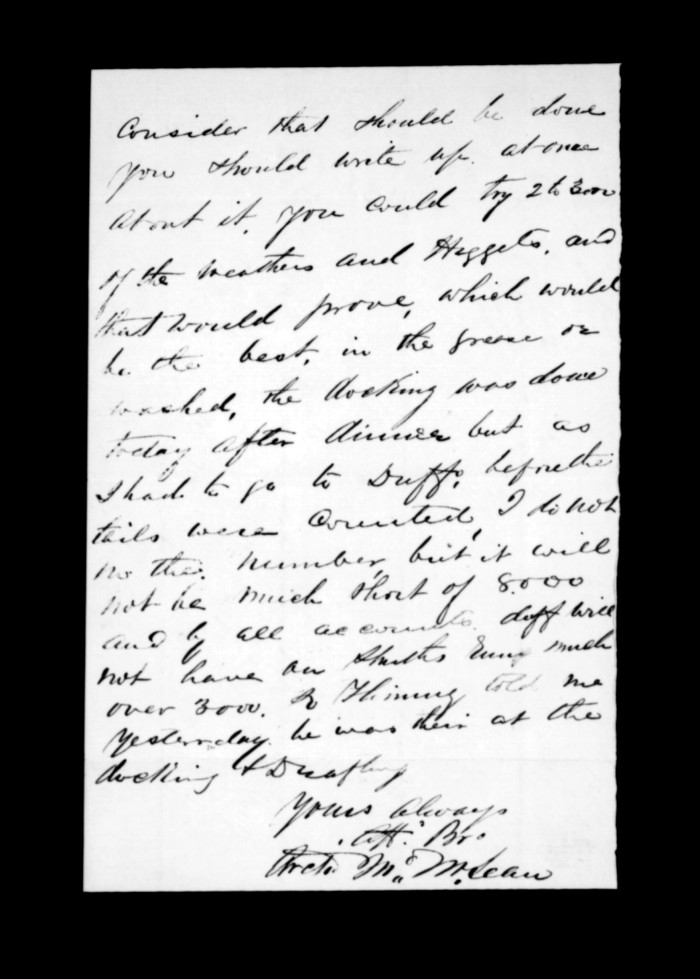 Consider that should be done
you should write up. at once
about it, you could try 2 to 3000
of the weathers and Heggets, and
that would prove, which would
be the best, in the grease or
washed, the docking was done
today after dinner but as
I had to go to Duffs before the
tails were counted, I do not
no the number, but it will
not be much short of 8.000
and by all accounts duff will
not have on Smiths Run much
over 3000. told me
yesterday he was their at the
docking & Drafting
Yours Always
Afft Bro
Archd Mc McLean